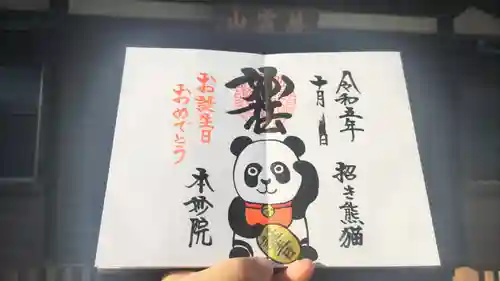 令和五年
十月 日
招き熊猫
妙法
お誕生日
おめでとう
本妙院